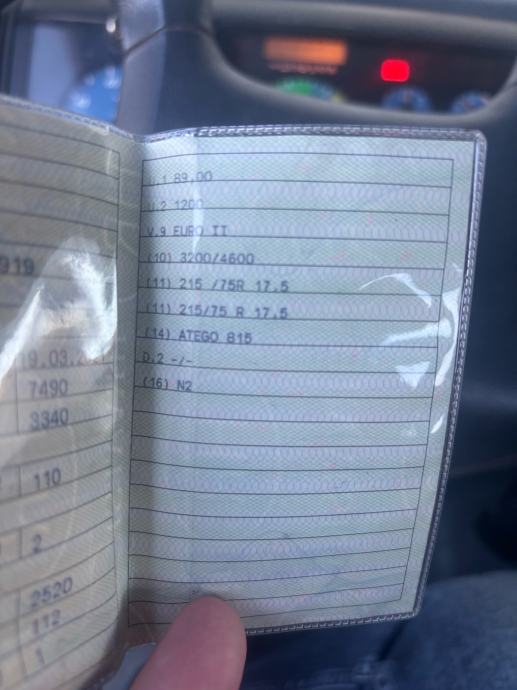 919
19.03.2
7490
3340
110
2
2520
112
1
U.1 89.00
U.2 1200
V.9 EURO II
(10) 3200/4600
(11) 215 /75R 17.5
(11) 215/75 R 17.5
(14) ATEGO 815
D.2 -/-
(16) N2